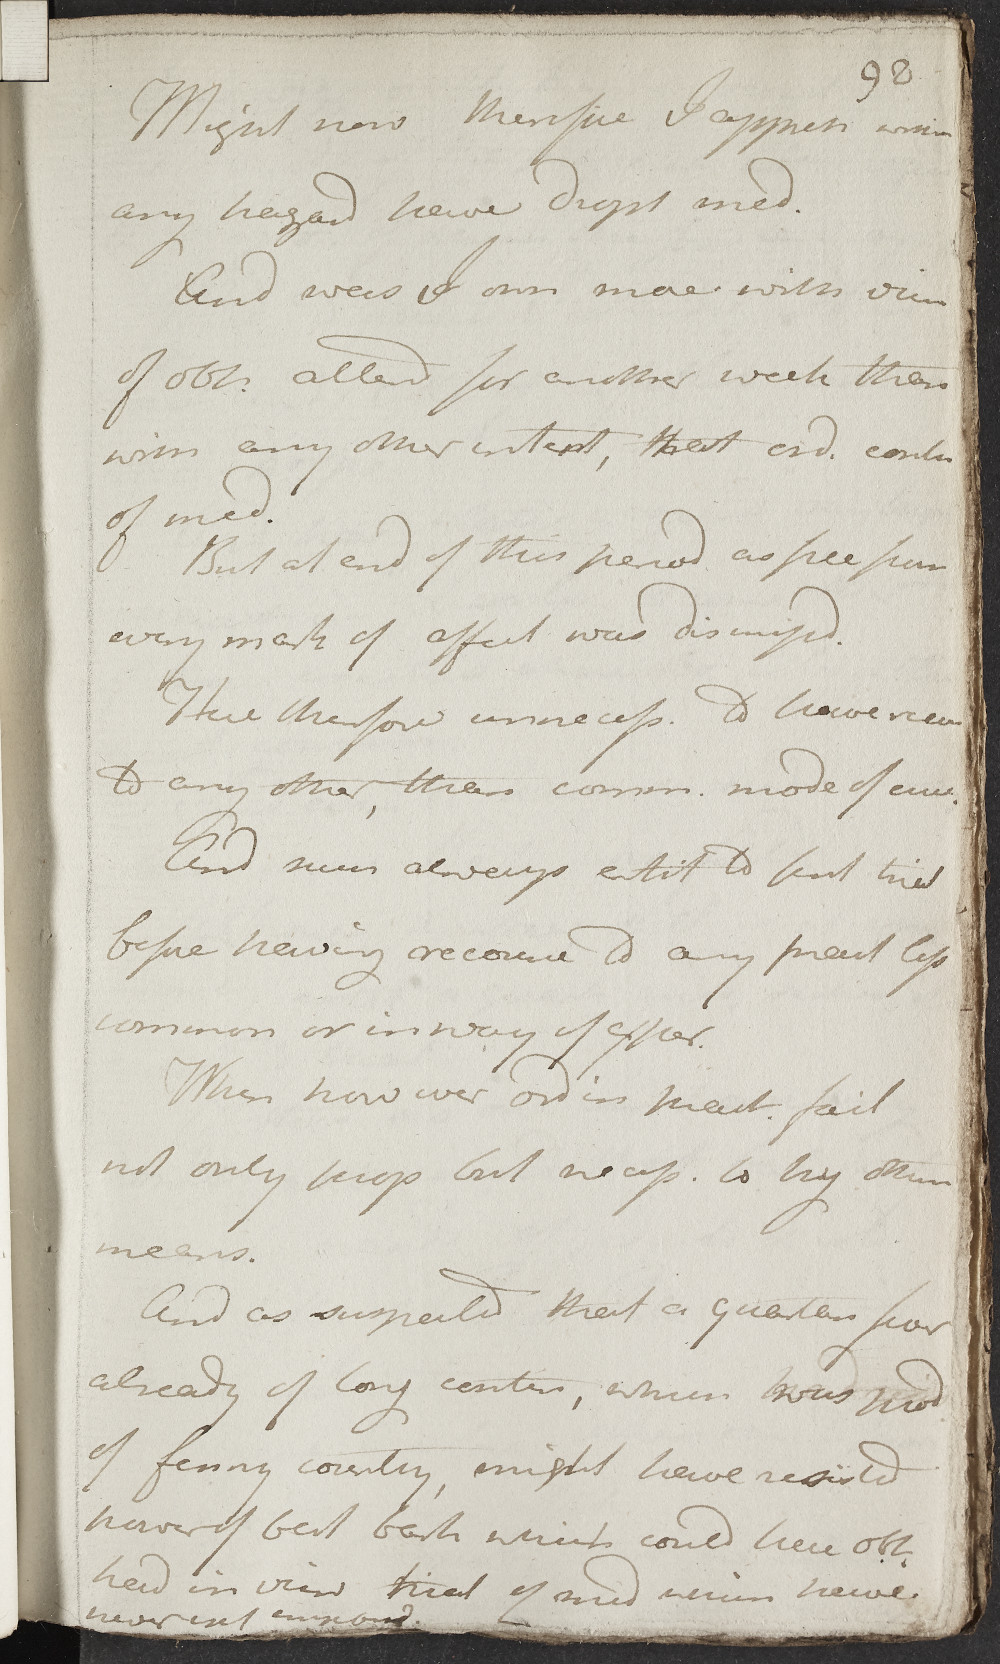 98
Might now therefore I appreh witht
any hazard have dropt med.
And was I own more with view
of obs. attend for another week than
with any other intent, that ord. contin
of med.
But at end of this period as free from
every mark of affect was dismissd.
Here therefore unnecess. to have recou
to any other, than comm. mode of cure.
And mus always entit to first trial
before having recourse to any pract less
common or in way of exper.
When however ordin pract. fail
not only prop but necess. to try other
means.
And as suspected that a quartan fever
already of long contin, whien was prod
of fenny country, might have resisted
power of best bark which could here obt.
had in view trial of med whien have
never yet